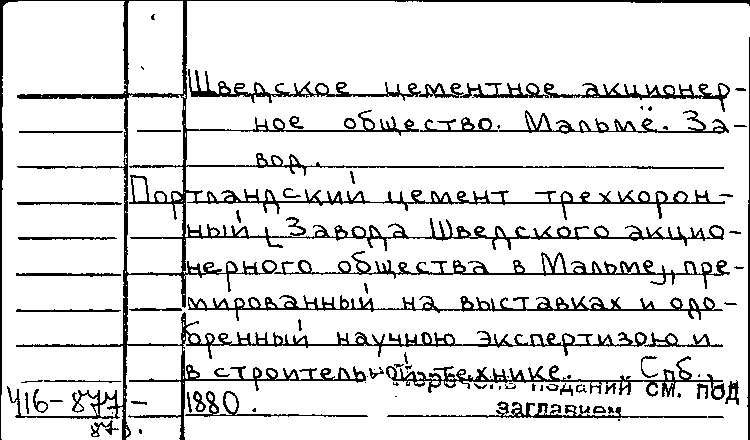 Шведское цементное акционер-
ное общество. Мальмё. За-
вод.
Портландский цемент трехкорон-
ный [Завода Шведского акцио-
нерного общества в Мальме], пре-
мированный на выставках и одо-
бренный научною экспертизою и
в строительной технике. Спб.,
изданий см. под
416-877- 1880.
заглавием